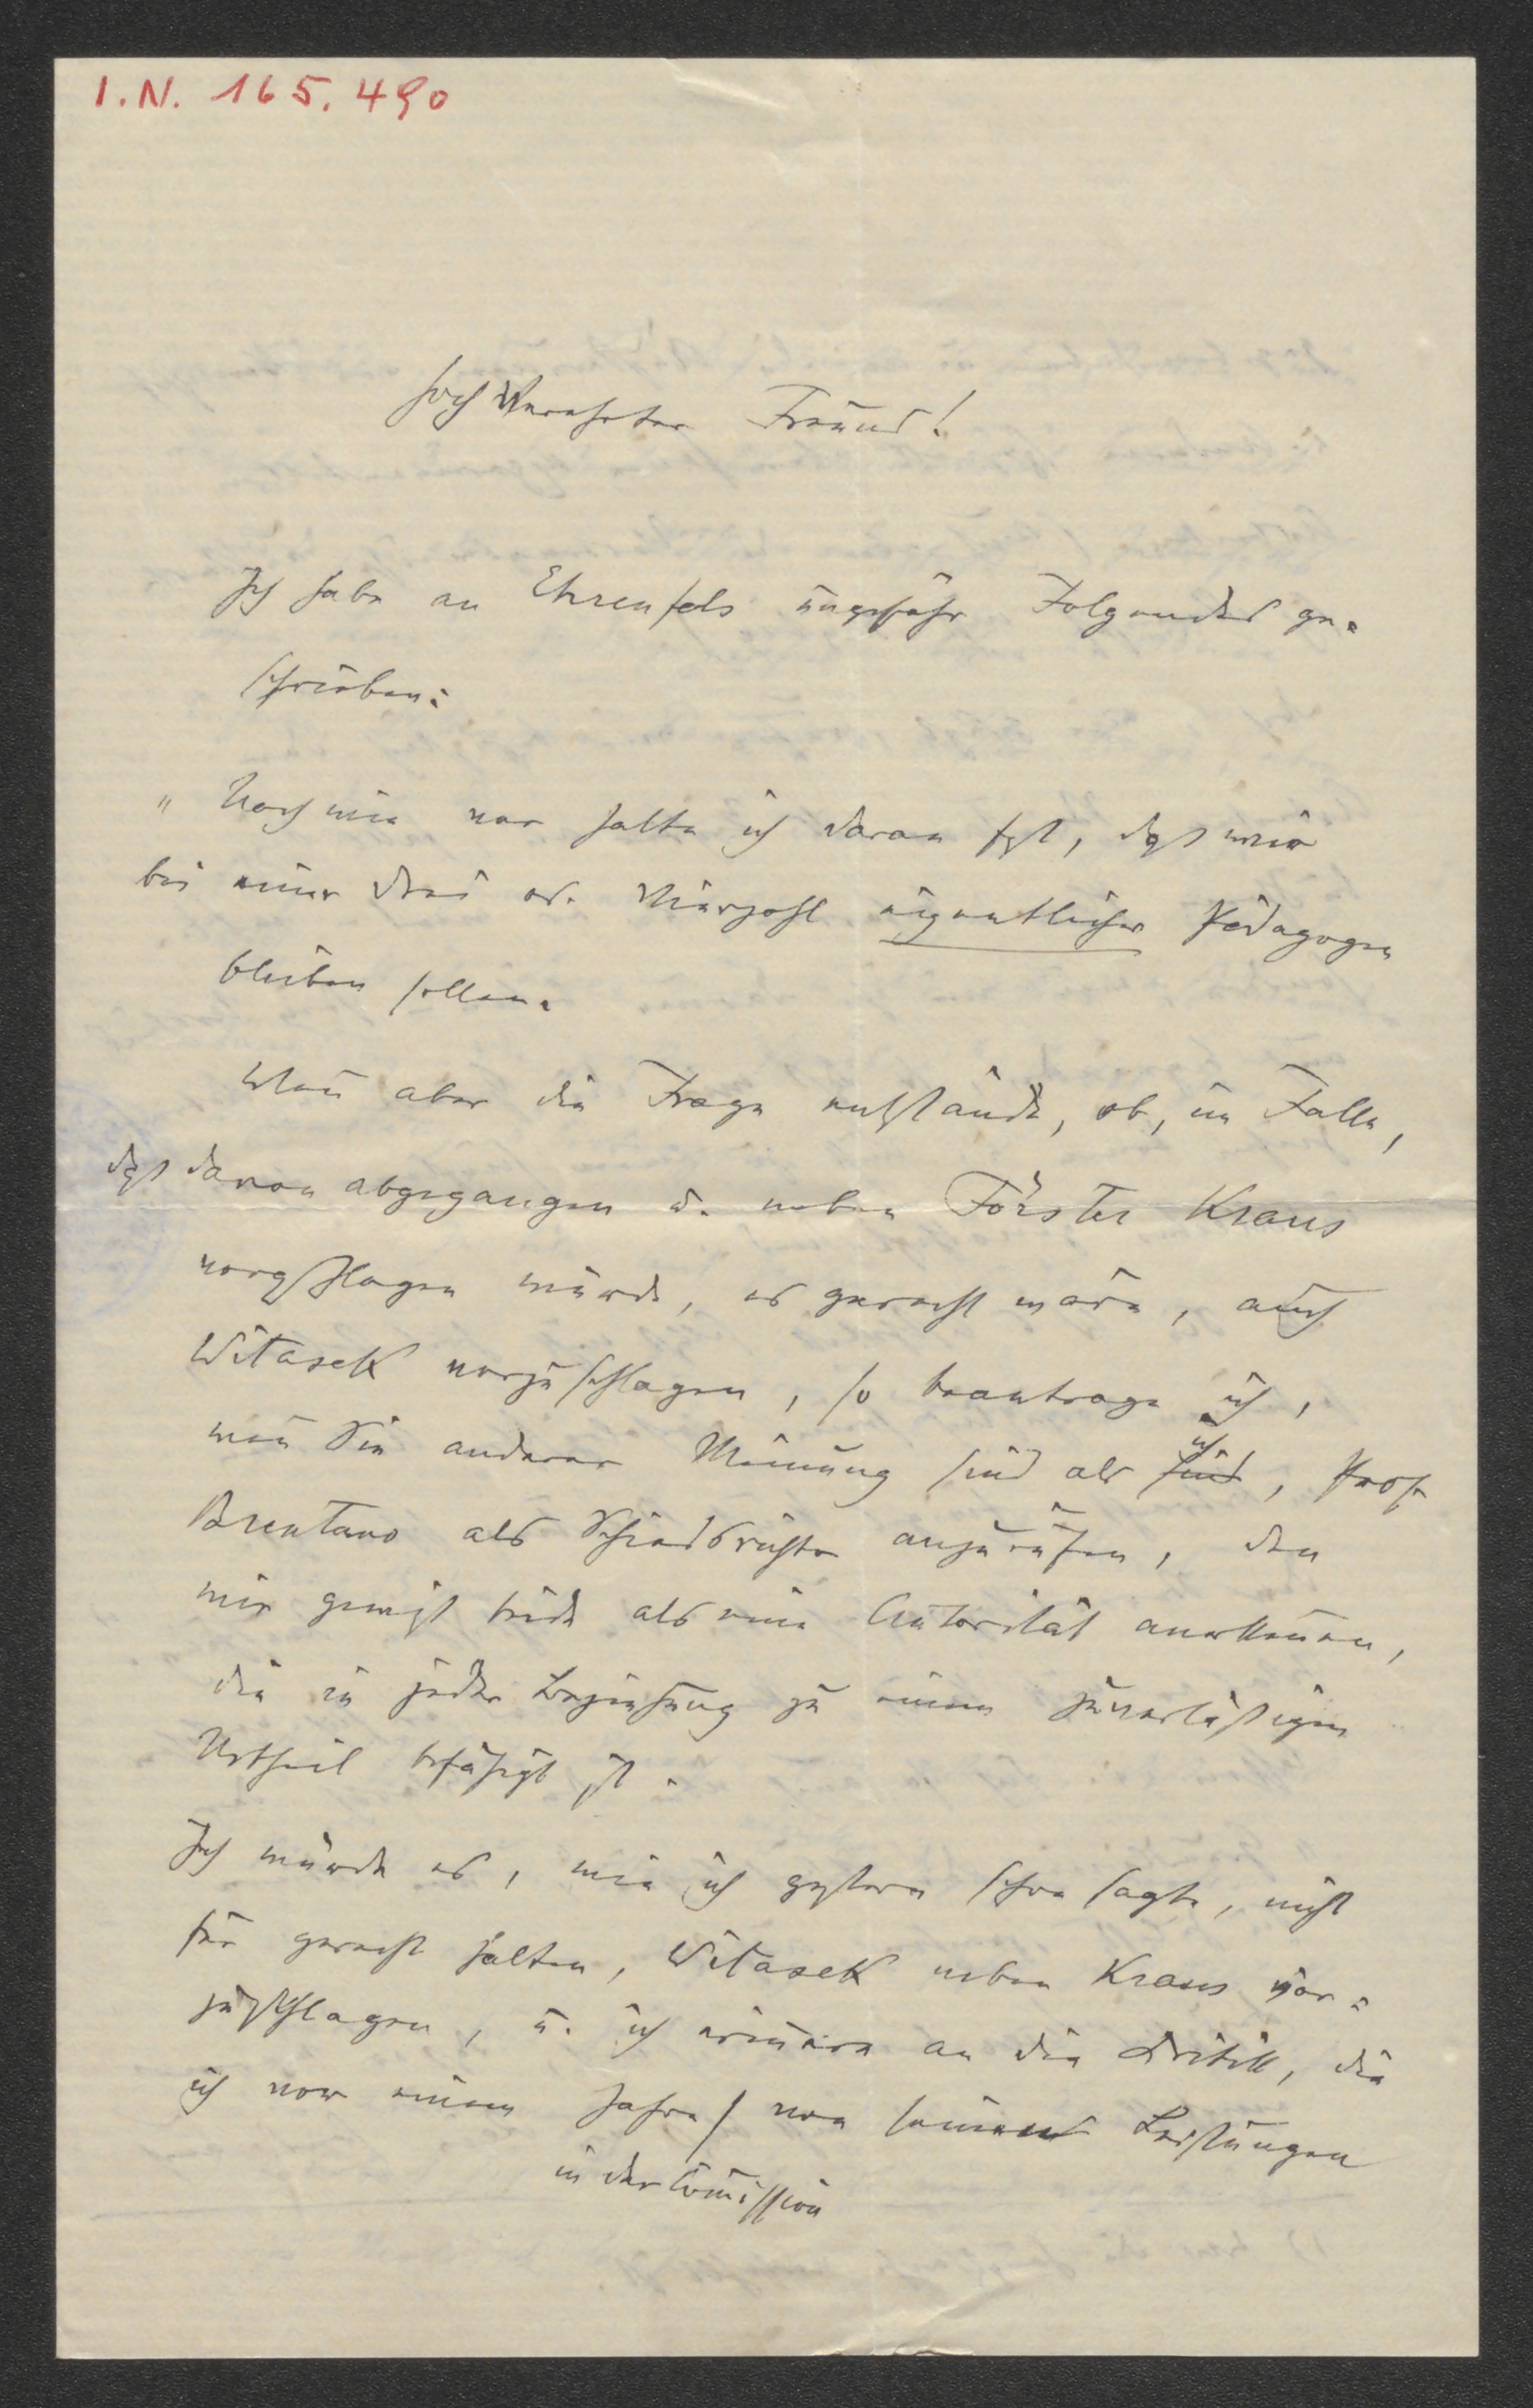 I.N. 165.490
Hochverehrter Freund!
Ich habe an Ehrenfels ungefähr Folgendes ge-
schrieben:
„Nach wie vor halte ich daran fest, dass wir
bei einer Drei od. Vierzahl eigentlicher Pädagogen
bleiben sollen.
Wen̄ aber die Frage entstände, ob, im Falle,
dass davon abgegangen u. neben Förster Kraus
vorgeschlagen würde, es gerecht wäre, auch
Witasek vorzuschlagen, so beantrage ich,
wen̄ Sie anderer Meinung sind als ich, Prof
Brentano als Schiedsrichter anzurufen, den
wir gewiss beide als eine Autorität anerken̄en,
die in jeder Beziehung zu einem zuverlässigen
Urtheil befähigt ist.
Ich würde es, wie ich gestern schon sagte, nicht
für gerecht halten, Witasek neben Kraus vor-
zuschlagen, u. ich erin̄ere an die Kritik, die
ich vor einem Jahre / von seinen Leistungen
in der Com̄ission